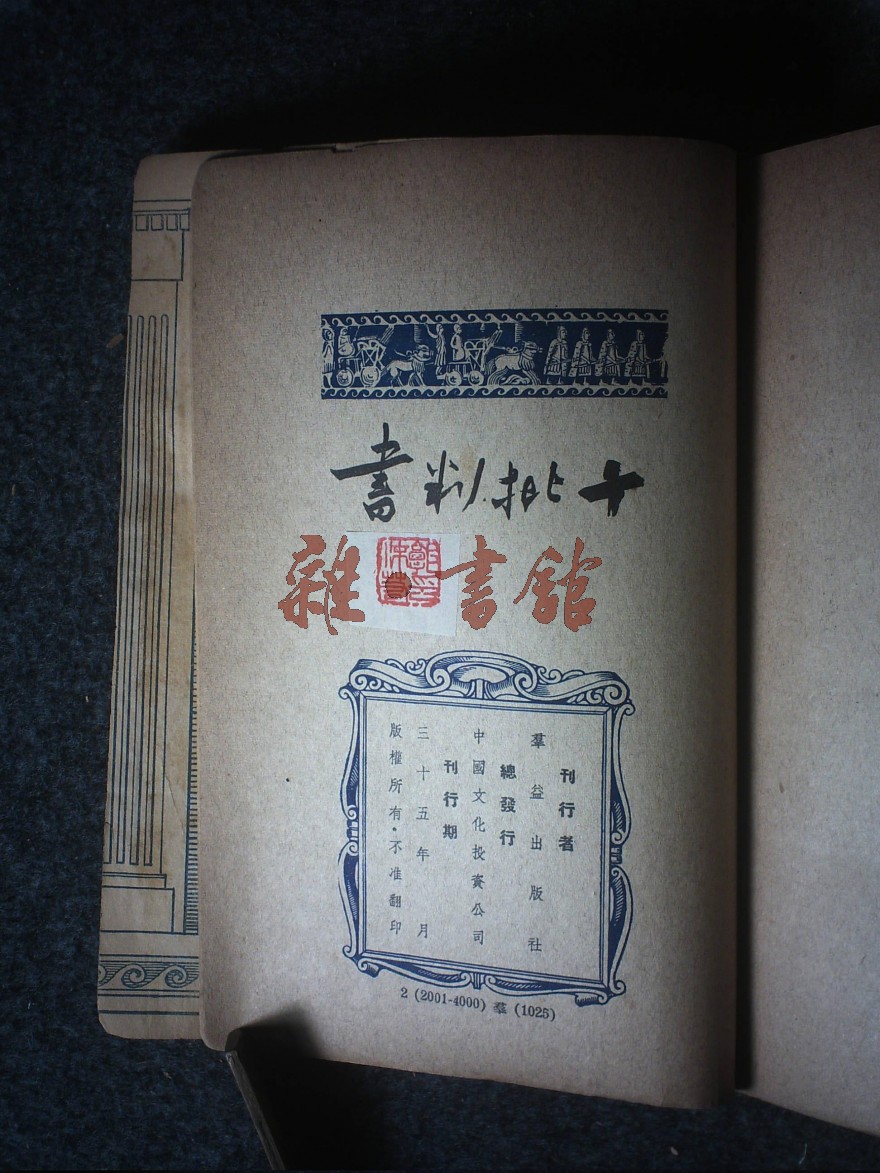 十批判書
雜書館
刊行者
羣益出版社
總發行
中國文化投資公司
刊行期
三十五年 月
版權所有·不准翻印
2 (2001-4000) 羣 (1025)